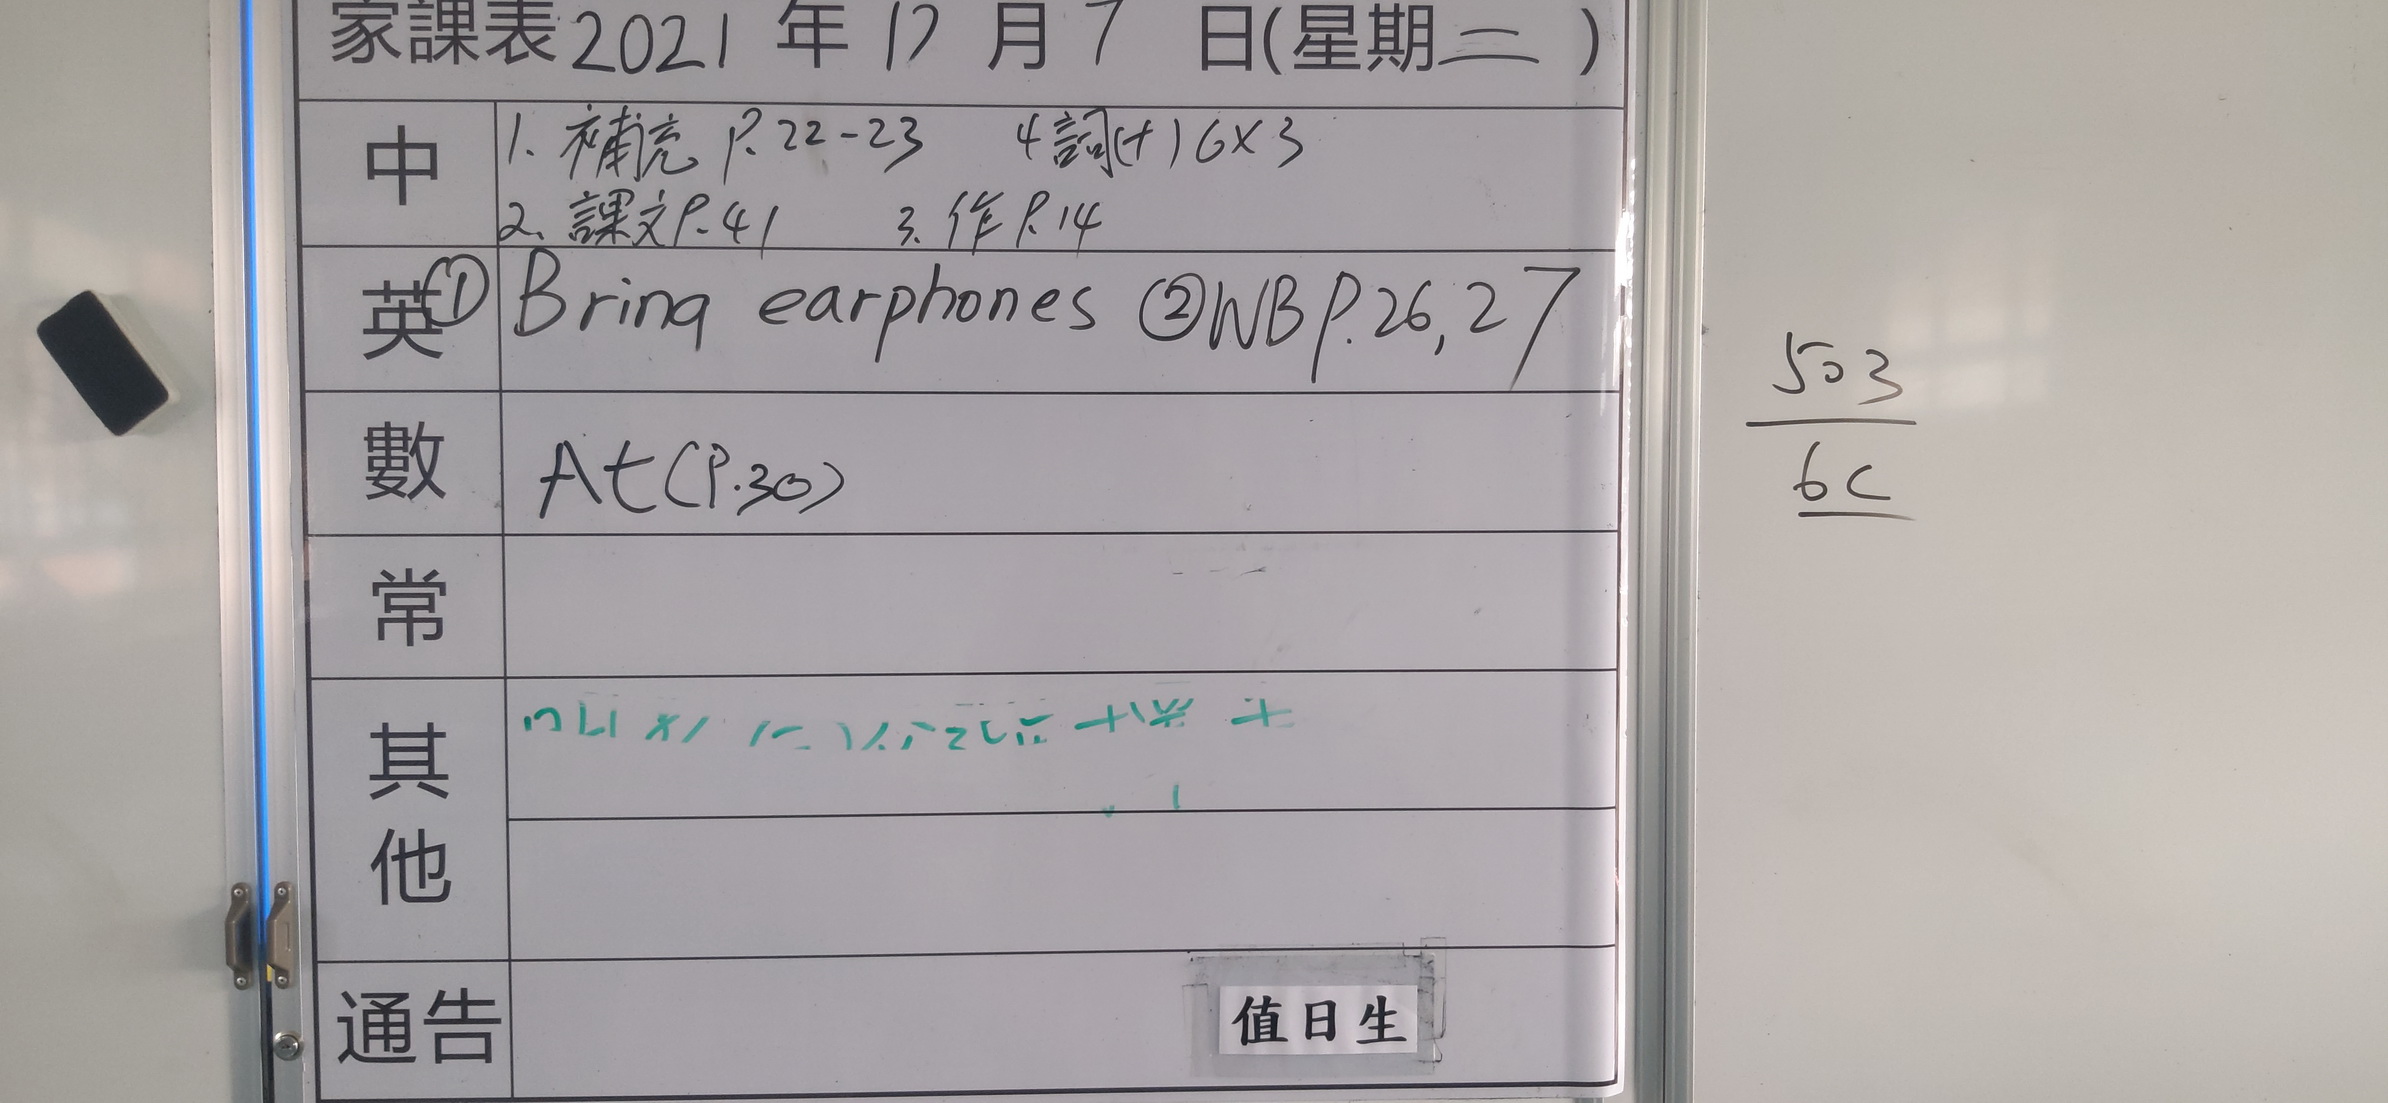 家課表 2021 年 12 月 7 日(星期二)
中
1. 補充 P.22-23 4 詞(十) 6X3
2. 課文 P.41 3. 作 P.14
英 ① Bring earphones ② WB P.26, 27
數 At (P.30)
常
其他
通告
值日生
503
6C